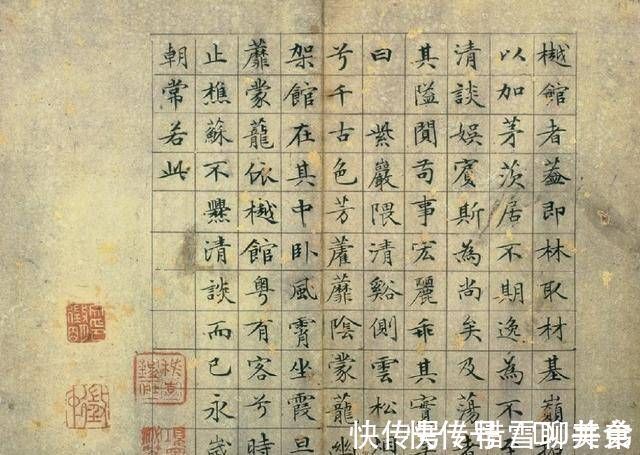 樾館者蓋即林取材基巔
以加茅茨居不期逸為不
清談娛賓斯為尚矣及蕩
其隘闃苟事宏麗乖其實
曰 紫巖隈清谿側雲松
兮千古色芳藿蘼陰蒙蘢幽
架館在其中卧風霄坐霞旦
蘼蒙蘢依樾館粵有客兮時
止樵蘇不爨清談而已永歲
朝常若此